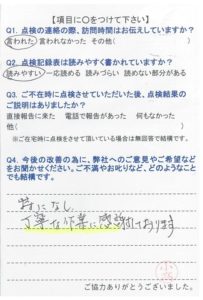 【項目に○をつけて下さい】
Q1. 点検の連絡の際、訪問時間はお伝えしていますか？
言われた 言われなかった その他(　　　　)
Q2. 点検記録表は読みやすく書かれていますか？
読みやすい 一応読める 読みづらい 読めない部分がある
Q3. ご不在時に点検させていただいた後、点検結果の
ご説明はありましたか？
直接報告に来た 電話で報告があった 何もなかった
他(　　　　)
※ご在宅時に点検をさせて頂いている場合は無回答で結構です。
Q4. 今後の改善の為に、弊社へのご意見やご希望など
をお聞かせください。ご不満やお叱りなど、どのようなこと
でも結構です。
特になし
丁寧な作業に感謝しております
ご協力ありがとうございました。